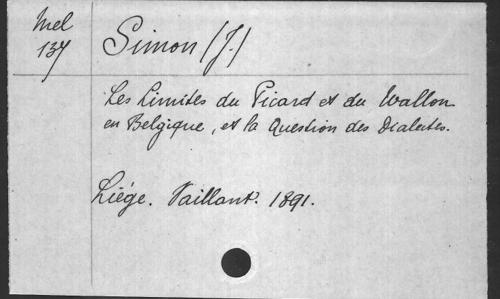 Mel
137
Simon (J.)
Les Limites du Picard et du Wallon
en Belgique, et la Question des Dialectes.
Liége. Vaillant. 1891.